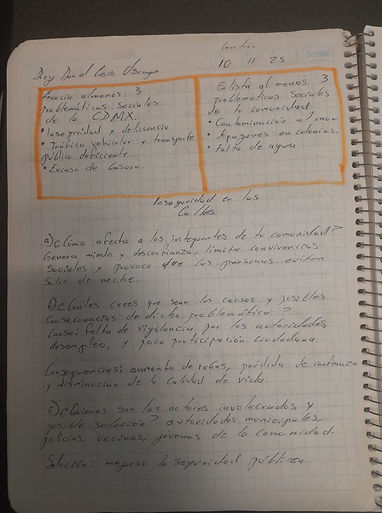 10 11 25
Enlista al menos 3
problemáticas sociales
de la CDMX.
• Inseguridad y delicuencia
• Tráfico vehicular y transporte
público deficiente
• Exceso de basura
Enlista al menos 3
problemáticas sociales
de la comunidad
• Contaminación
• Apagones en colonias.
• Falta de agua
Inseguridad en las
Calles.
a) ¿Cómo afecta a los integrantes de tu comunidad?
Genera miedo y desconfianza, limita convivencias
Sociales y provoca que las personas eviten
Salir de noche.
b) ¿Cuáles crees que son las causas y posibles
Consecuencias de dicha problemática?
Causas: falta de vigilancia, por las autoridades
desempleo, y poca participación ciudadana.
Consequencias: aumento de robos, pérdida de confianza
y disminución de la calidad de vida.
c) ¿Quienes son los actores involucrados y
posible solución? autoridades municipales,
policías, vecinos, jóvenes de la comunidad.
Solución: mejorar la seguridad pública.